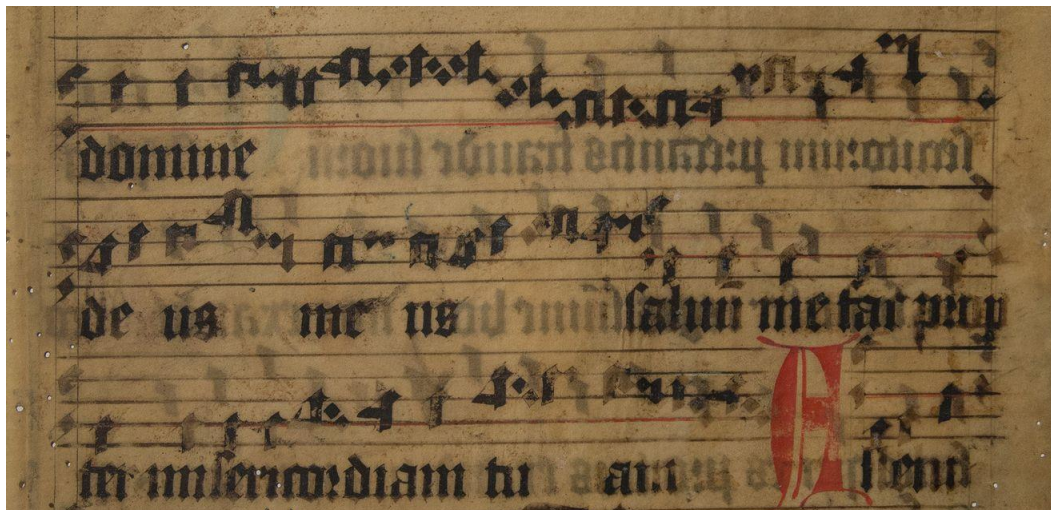 domine
de us me us saluu me fac prop
ter misericordiam tu am A ssenti